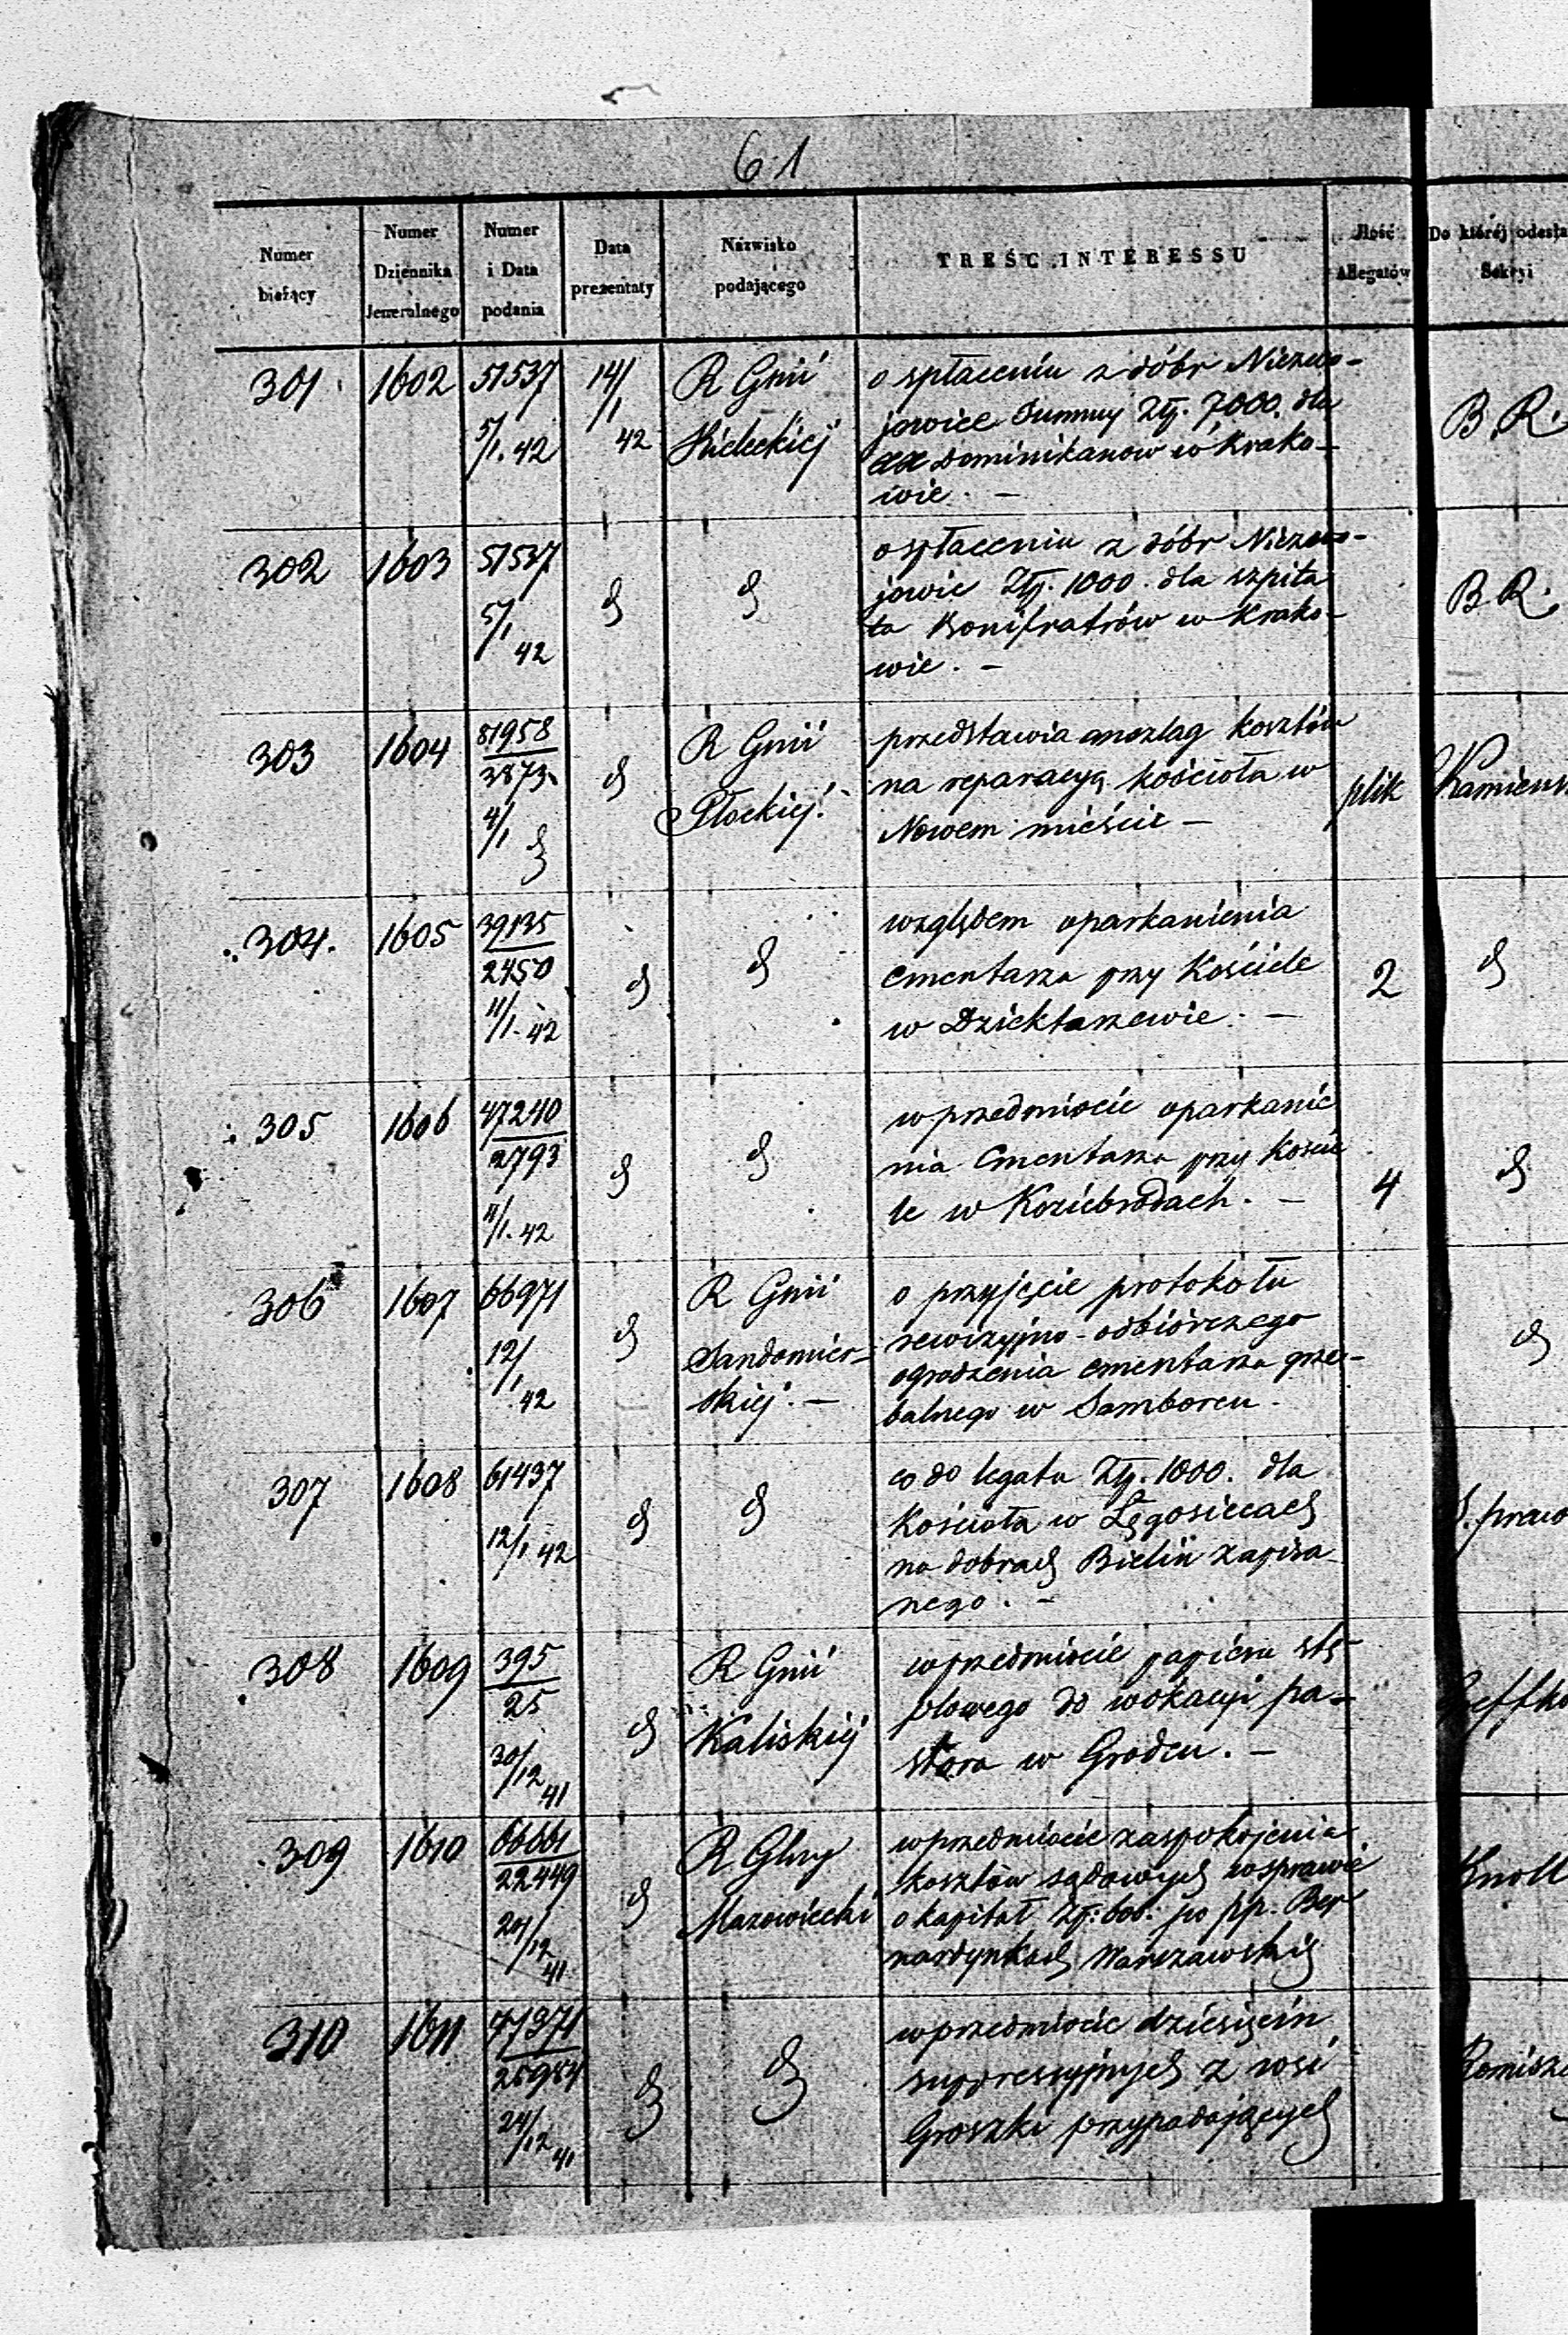 61
Numer bieżący | Numer Dziennika Jeneralnego | Numer i Data podania | Data prezentaty | Nazwisko podającego | TREŚĆ INTERESSU | Ilość Allegatów | Do której odesła Sekcyi
301 | 1602 | 51537 5/1. 42 | 14/1 42 | R Gnii Kieleckiej | o spłaceniu z dóbr
jowice Summy Złp. 7000. dla
xx Dominikanow w Krako-
wie. — | B. R.
302 | 1603 | 51537 5/1 42 | d | d | o spłaceniu z dóbr
jowic Złp. 1000. dla szpita
la Bonifratrów w Krako-
wie. — | B. R.
303 | 1604 | 81958 4/1 d | d | R Gnii Płockiej. | przedstawia anszlag kosztów
na reparacyą kościoła w
Nowem mieście — | plik | Kamieńs
304. | 1605 | 39135 2450 11/1. 42 | d | d | względem oparkanienia
Cmentarza przy Kościele
w Dziektarzewie. — | 2 | d
305 | 1606 | 47240 2793 11/1. 42 | d | d | w przedmiocie oparkanie
nia Cmentarza przy koście
le w Koziebrodach. — | 4 | d
306 | 1607 | 66971 12/1 42 | d | R Gnii Sandomier- skiej. — | o przyjęcie protokołu
rewizyjno-odbiórczego
ogrodzenia cmentarza grze-
balnego w Samborcu. | d
307 | 1608 | 61437 12/1 42 | d | d | co do legatu Złp. 1000. dla
Kościoła w Łęgosicach
na dobrach Bielin zapisa
nego. — | S. praw
308 | 1609 | 395 25 30/12 41 | d | R Gnii Kaliskiej | w przedmiocie papieru stę
plowego do wokacyi pa-
stora w Grodcu. —
309 | 1610 | 66661 22449 24/12 41 | d | R Gbny Mazowiecki | w przedmiocie zaspokojenia
kosztów sądowych w sprawie
o kapitał Złp. 600. po pp. Ber
nardynkach Warszawskich | Knoll
310 | 1611 | 24/12 41 | d | d | w przedmiocie dziesięcin
suppressyjnych z wsi
Groszki przypadających